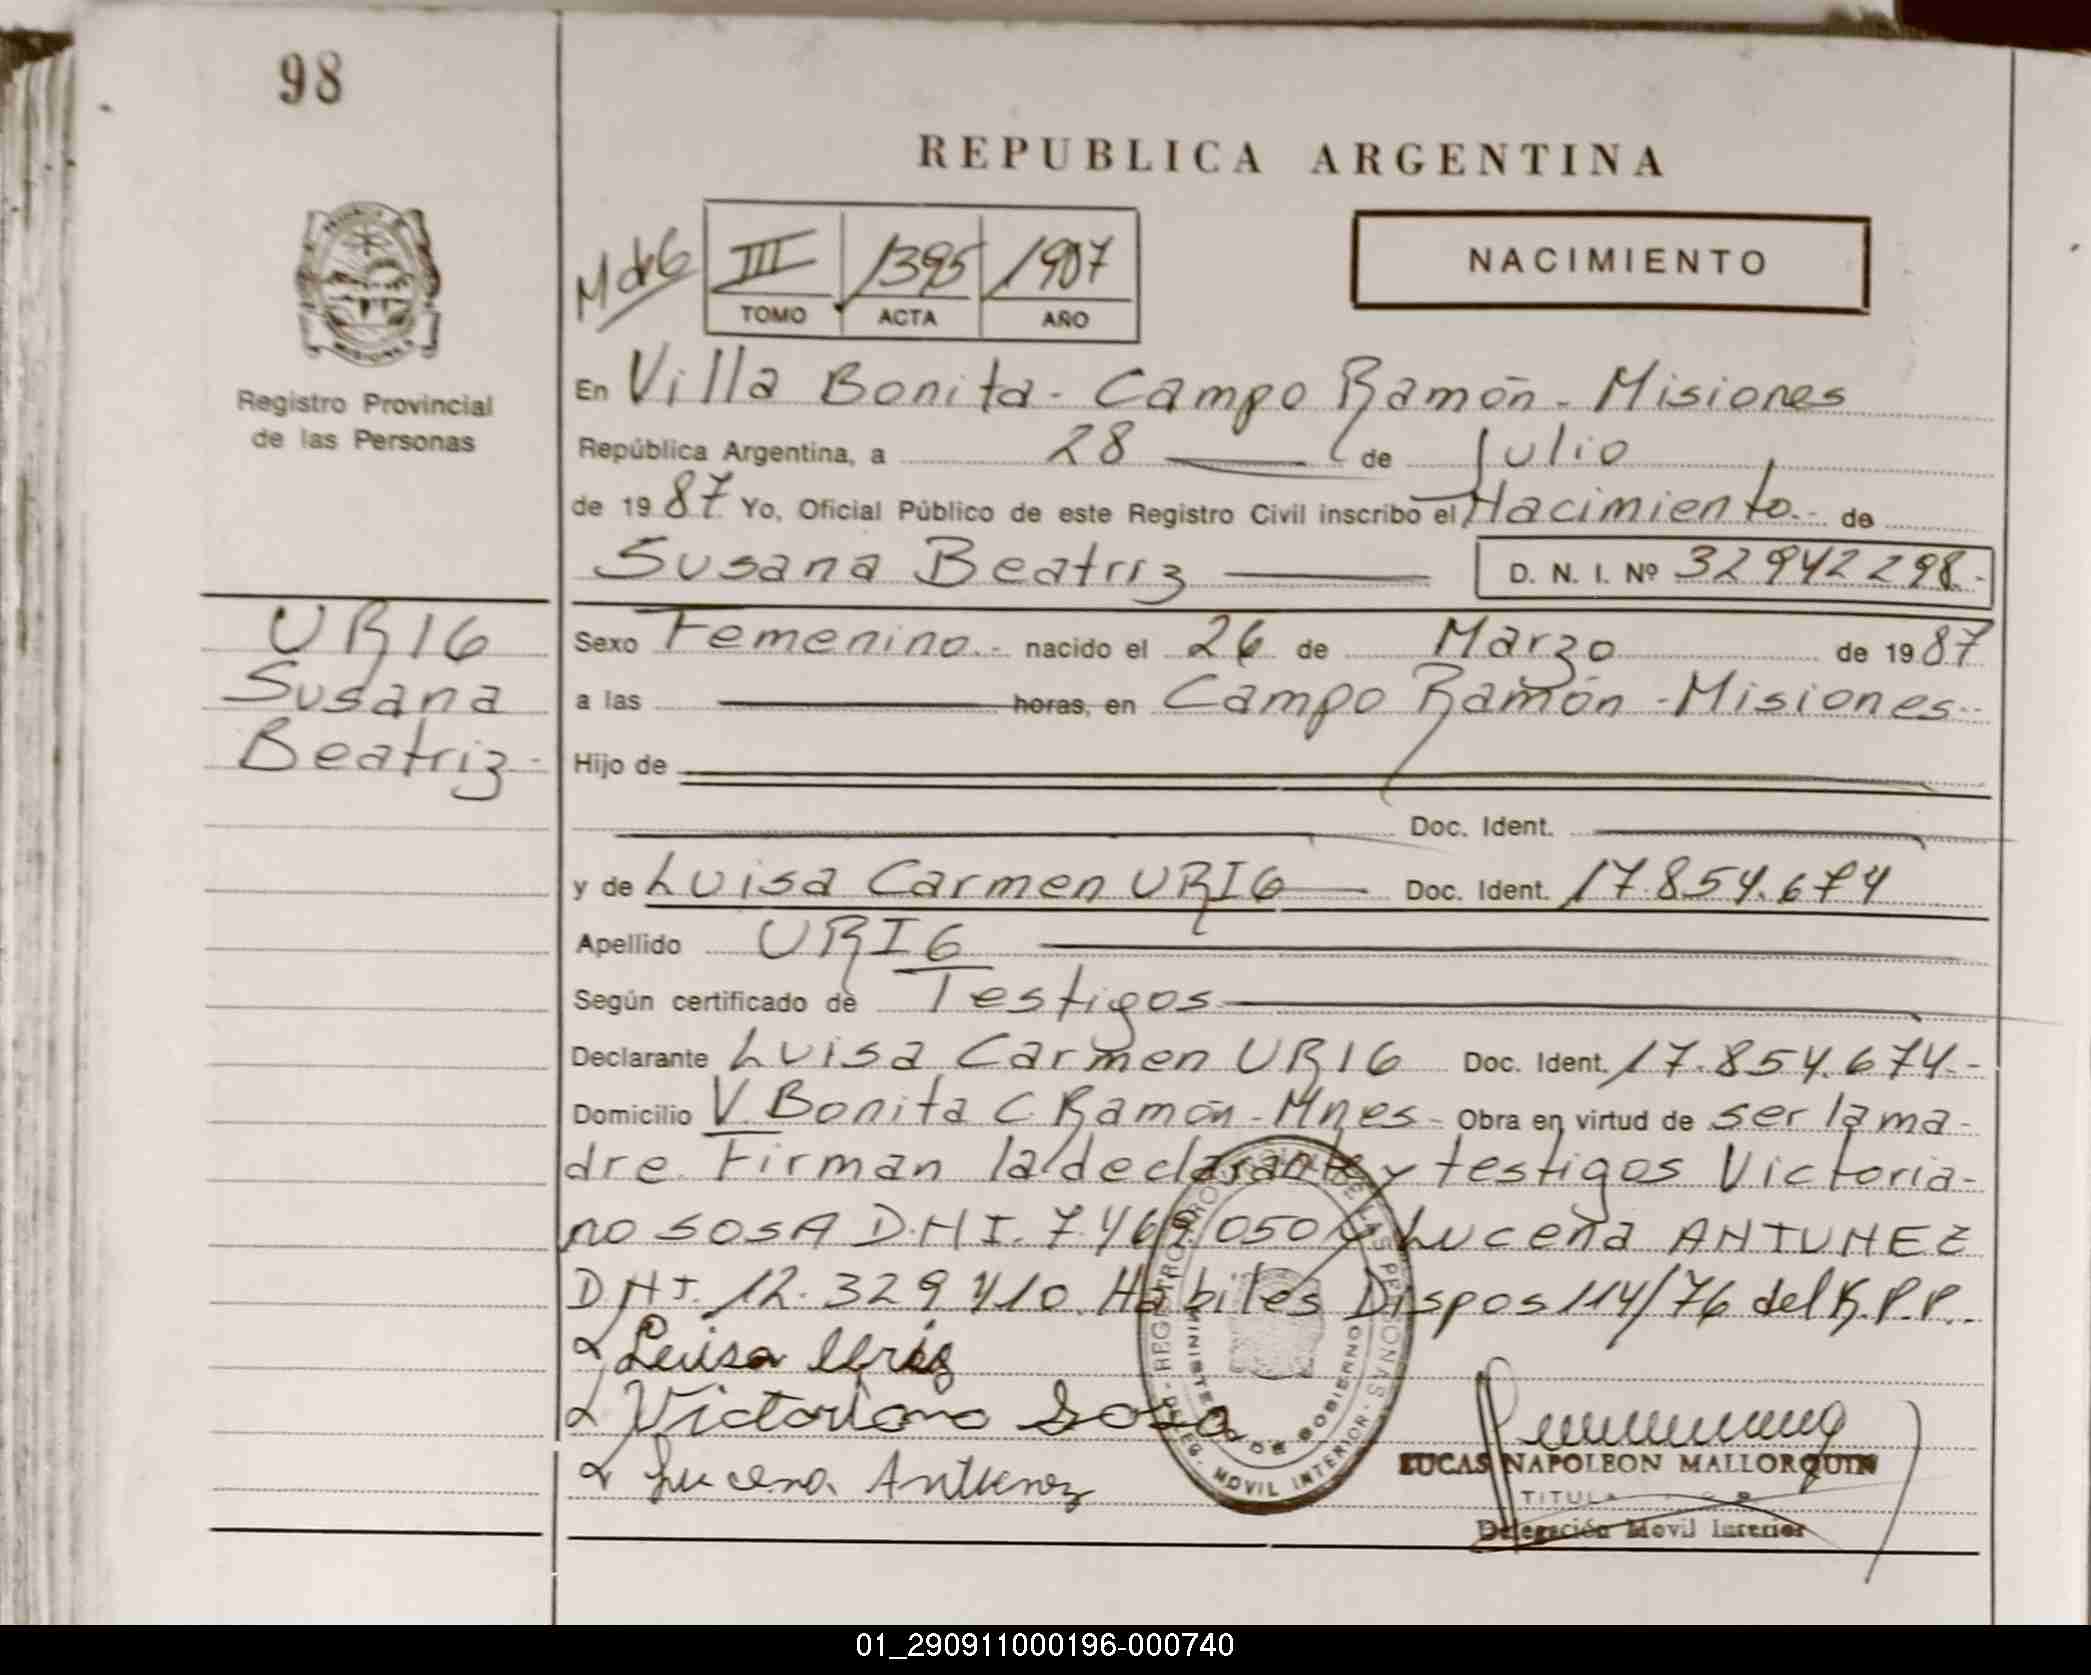 98
REPUBLICA ARGENTINA
M de G
III 1395 1987
TOMO ACTA AÑO
NACIMIENTO
MISIONES
Registro Provincial
de las Personas
En Villa Bonita - Campo Ramón - Misiones
República Argentina, a 28 de Julio
de 19 87 Yo, Oficial Público de este Registro Civil inscribo el Nacimiento.- de
Susana Beatriz D. N. I. Nº 32942298.-
URIG
Susana
Beatriz.-
Sexo Femenino.- nacido el 26 de Marzo de 19 87
a las horas, en Campo Ramón - Misiones.-
Hijo de
Doc. Ident.
y de Luisa Carmen URIG Doc. Ident. 17.854.674
Apellido URIG
Según certificado de Testigos
Declarante Luisa Carmen URIG Doc. Ident. 17.854.674.-
Domicilio V. Bonita C. Ramón - Mnes - Obra en virtud de ser la ma-
dre. Firman la declarante y testigos Victoria-
no SOSA D.N.I. 7.469.050 y Lucena ANTUNEZ
D.N.I. 12.329.410. Hábiles Dispos 114/76 del R.P.P.
Luisa Urig
Victoriano Sosa
Lucena Antunez
REGISTRO PROVINCIAL DE LAS PERSONAS
MINISTERIO DE GOBIERNO
DELEG. MOVIL INTERIOR
LUCAS NAPOLEON MALLORQUIN
Delegación Movil Interior
01_290911000196-000740